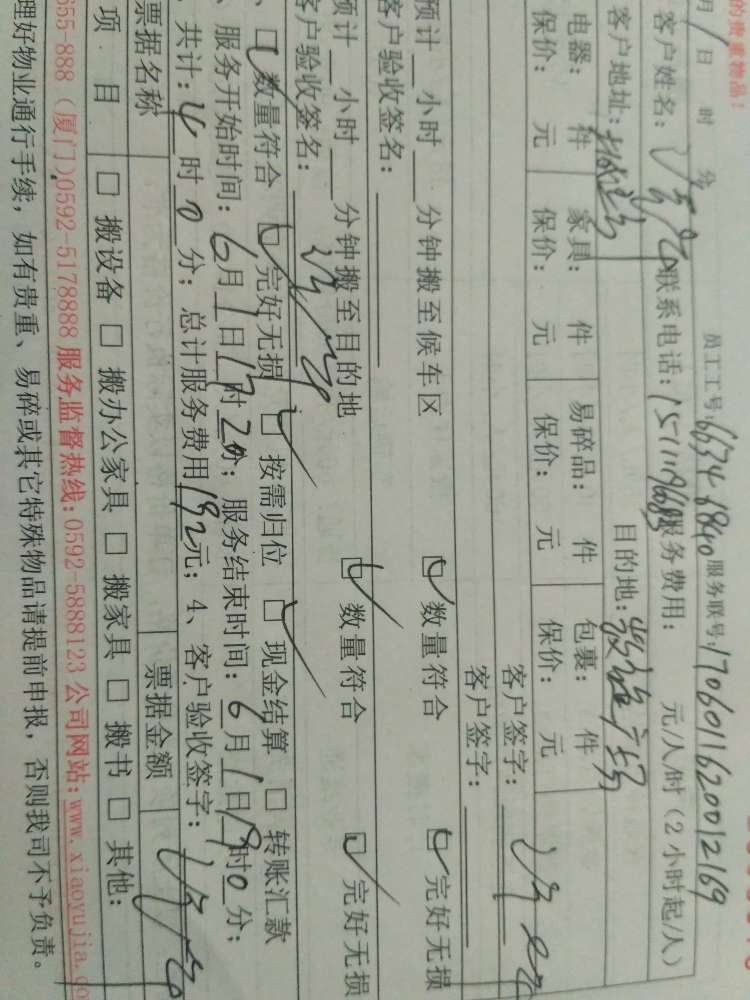 的贵重物品！
月1日 时 分 员工工号：6634 6840 服务联号：170601162001 2169
客户姓名： 联系电话：15111196683 服务费用： 元/人/时（2小时起/人）
客户地址： 目的地：
电器： 件 家具： 件 易碎品： 件 包裹： 件
保价： 元 保价： 元 保价： 元 保价： 元
客户签字：
预计 小时 分钟搬至候车区 数量符合 完好无损
客户验收签名： 客户签字：
预计 小时 分钟搬至目的地 数量符合 完好无损
客户验收签名：
、□数量符合 □完好无损 □按需归位 □现金结算 □转账汇款
、服务开始时间：6月1日 时20分；服务结束时间：6月1日19时0分；
、共计：4时0分；总计服务费用192元；4、客户验收签字：
票据名称 票据金额
项 目 □搬设备 □搬办公家具 □搬家具 □搬书 □其他：
655-888（厦门）0592-5178888 服务监督热线：0592-5888123 公司网站：www.xiaoyujia.co
理好物业通行手续，如有贵重、易碎或其它特殊物品请提前申报，否则我司不予负责。